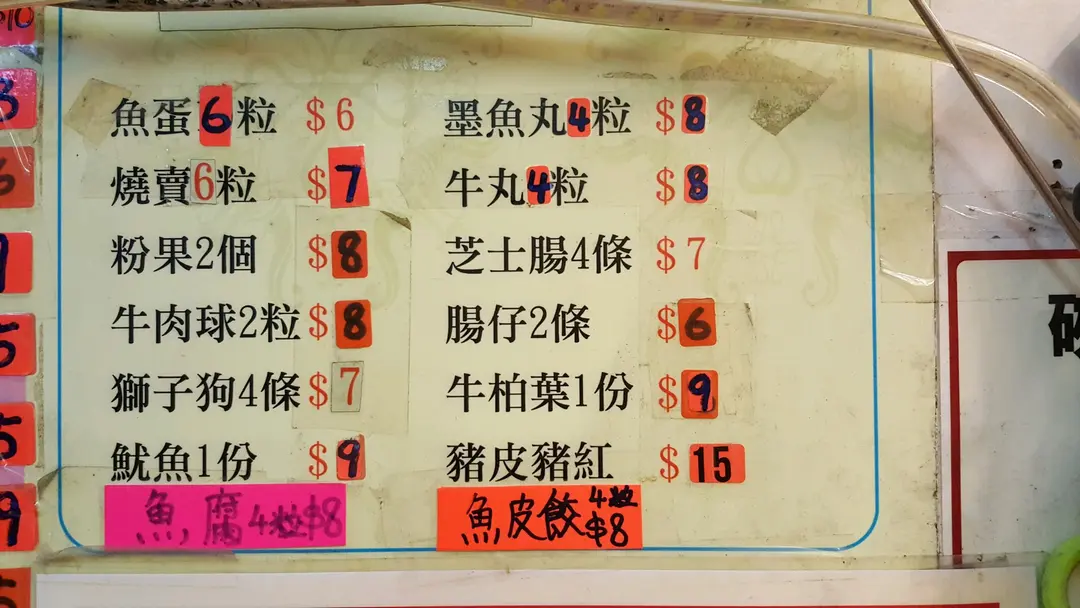 魚蛋6粒 $6
燒賣6粒 $7
粉果2個 $8
牛肉球2粒 $8
獅子狗4條 $7
魷魚1份 $9
魚腐4粒$8
墨魚丸4粒 $8
牛丸4粒 $8
芝士腸4條 $7
腸仔2條 $6
牛柏葉1份 $9
豬皮豬紅 $15
魚皮餃4粒
$8